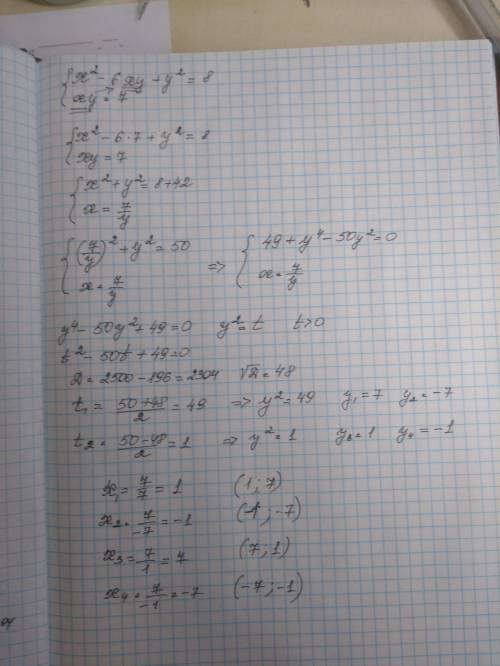 { x² - 6xy + y² = 8
xy = 7
{ x² - 6·7 + y² = 8
xy = 7
{ x² + y² = 8+42
x = 7/y
{ (7/y)² + y² = 50 => { 49 + y⁴ - 50y² = 0
x = 7/y x = 7/y
y⁴ - 50y² + 49 = 0 y² = t t>0
t² - 50t + 49 = 0
D = 2500 - 196 = 2304 √D = 48
t₁ = (50+48)/2 = 49 => y² = 49 y₁ = 7 y₂ = -7
t₂ = (50-48)/2 = 1 => y² = 1 y₃ = 1 y₄ = -1
x₁ = 7/7 = 1 (1; 7)
x₂ = 7/-7 = -1 (-1; -7)
x₃ = 7/1 = 7 (7; 1)
x₄ = 7/-1 = -7 (-7; -1)